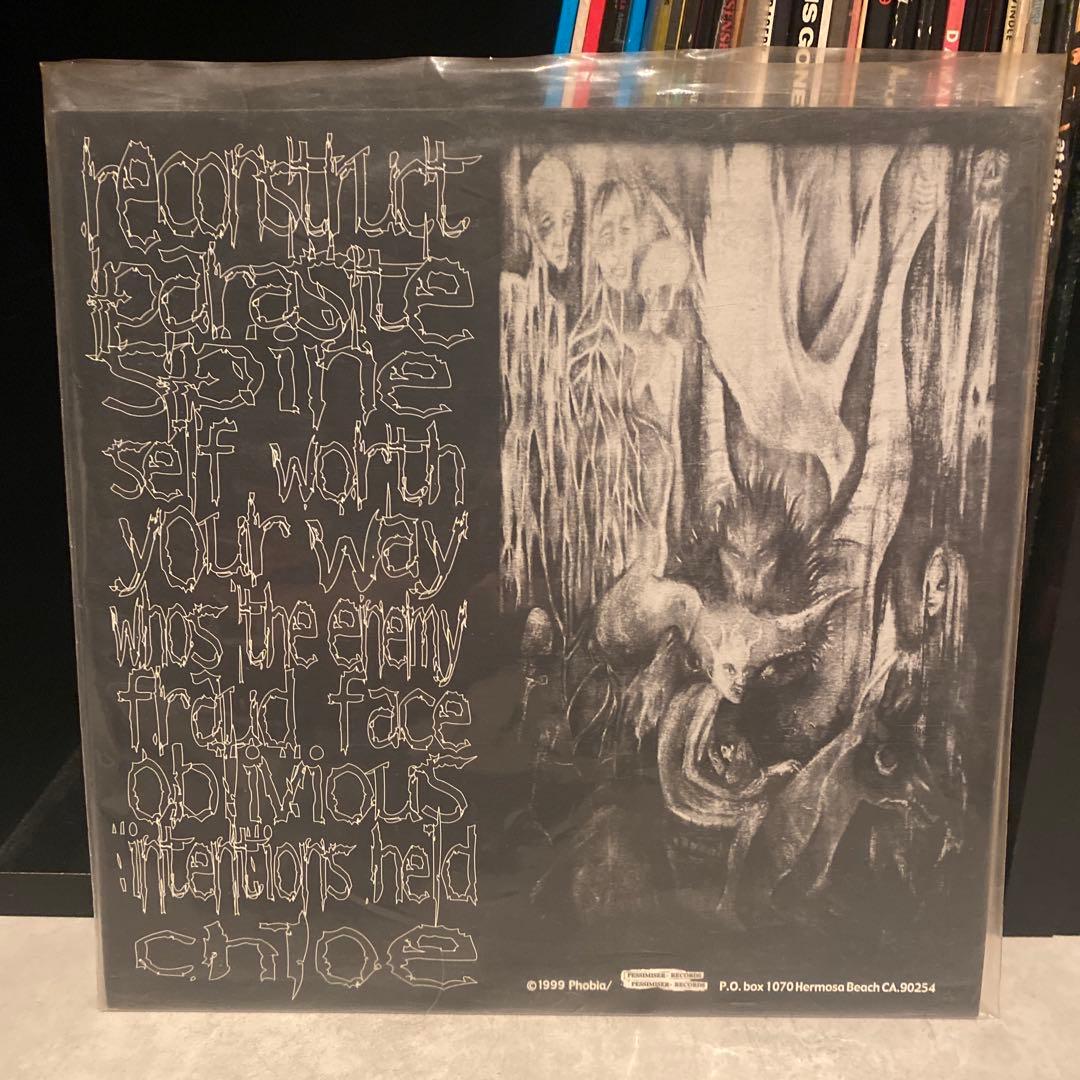 reconstruct
parasite
spine
self worth
your way
whos the enemy
fraud face
oblivious
intentions held
chloe
©1999 Phobia/
PESSIMISER - RECORDS
PESSIMISER - RECORDS
P.O. box 1070 Hermosa Beach CA. 90254